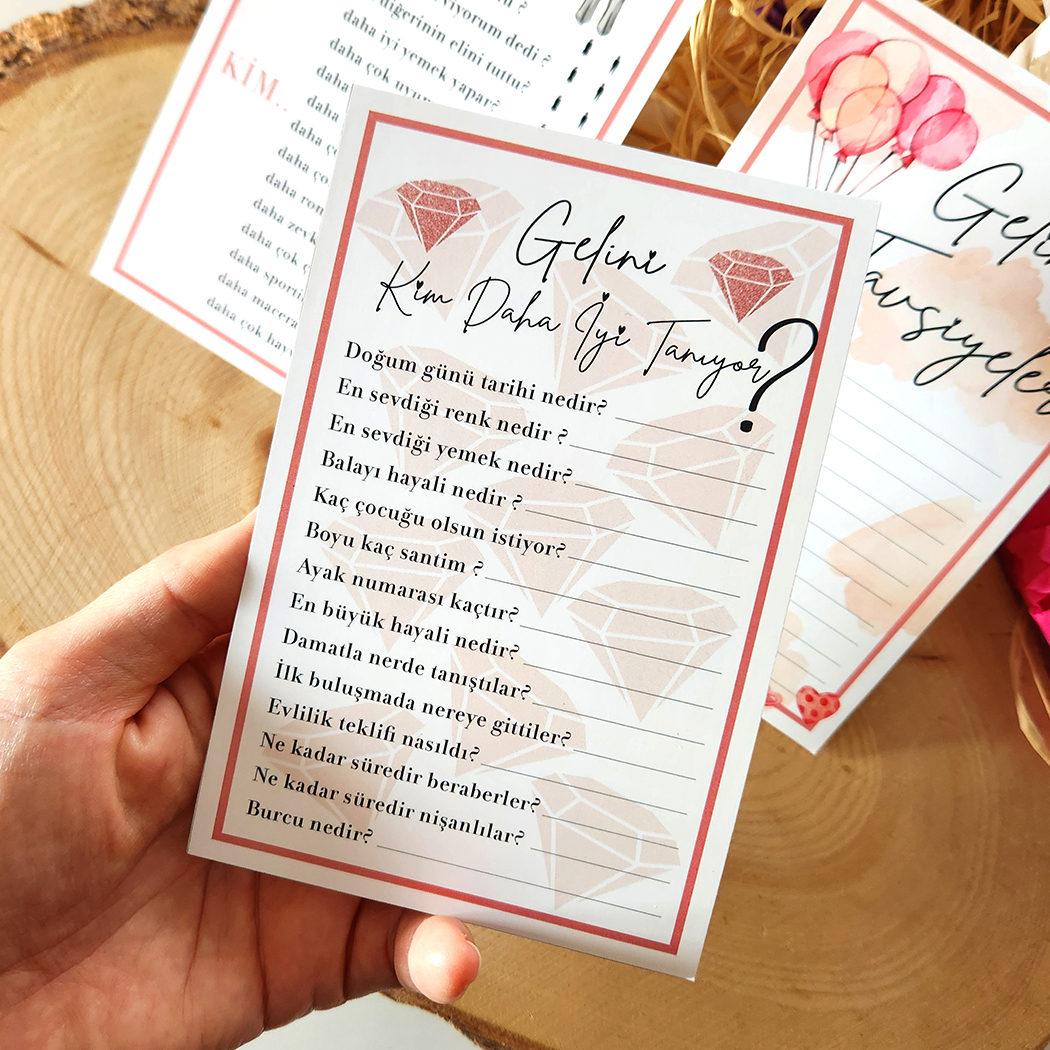 dedi ?
diğerinin elini tuttu?
daha iyi yemek yapar?
daha çok
KİM..
daha
daha
daha
daha
daha zevk
daha çok
daha sporti
daha macera
daha çok
Gelini
Kim Daha İyi Tanıyor?
Doğum günü tarihi nedir?
En sevdiği renk nedir ?
En sevdiği yemek nedir?
Balayı hayali nedir ?
Kaç çocuğu olsun istiyor?
Boyu kaç santim ?
Ayak numarası kaçtır?
En büyük hayali nedir?
Damatla nerde tanıştılar?
İlk buluşmada nereye gittiler?
Evlilik teklifi nasıldı?
Ne kadar süredir beraberler?
Ne kadar süredir nişanlılar?
Burcu nedir?
Gelin
Tavsiyeler